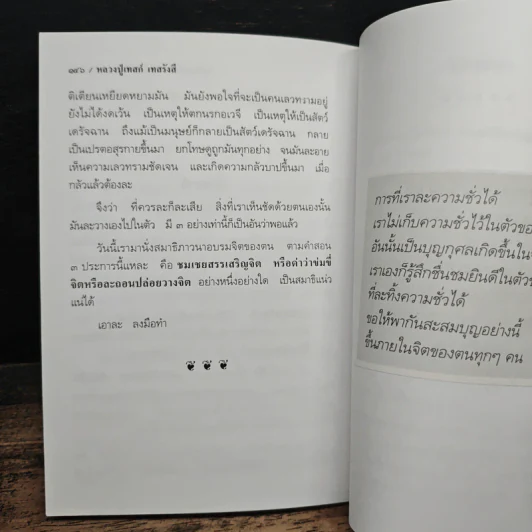 ๑๙๖ / หลวงปู่เทสก์ เทสรังสี
ติเตียนเหยียดหยามมัน มันยังพอใจที่จะเป็นคนเลวทรามอยู่
ยังไม่ได้งดเว้น เป็นเหตุให้ตกนรกอเวจี เป็นเหตุให้เป็นสัตว์
เดรัจฉาน ถึงแม้เป็นมนุษย์ก็กลายเป็นสัตว์เดรัจฉาน กลาย
เป็นเปรตอสุรกายขึ้นมา ยกโทษดูถูกมันทุกอย่าง จนมันละอาย
เห็นความเลวทรามชัดเจน และเกิดความกลัวบาปขึ้นมา เมื่อ
กลัวแล้วต้องละ
จึงว่า ที่ควรละก็ละเสีย สิ่งที่เราเห็นชัดด้วยตนเองนั้น
มันละวางเองไปในตัว มี ๓ อย่างเท่านี้ก็เป็นอันว่าพอแล้ว
วันนี้เรามานั่งสมาธิภาวนาอบรมจิตของตน ตามคำสอน
๓ ประการนี้แหละ คือ ชมเชยสรรเสริญจิต หรือด่าว่าข่มขี่
จิตหรือละถอนปล่อยวางจิต อย่างหนึ่งอย่างใด เป็นสมาธิแน่ว
แน่ได้
เอาละ ลงมือทำ
การที่เราละความชั่วได้
เราไม่เก็บความชั่วไว้ในตัวขอ
อันนั้นเป็นบุญกุศลเกิดขึ้นใน
เราเองก็รู้สึกชื่นชมยินดีในตัว
ที่ละทิ้งความชั่วได้
ขอให้พากันสะสมบุญอย่างนี้
ขึ้นภายในจิตของตนทุกๆ คน